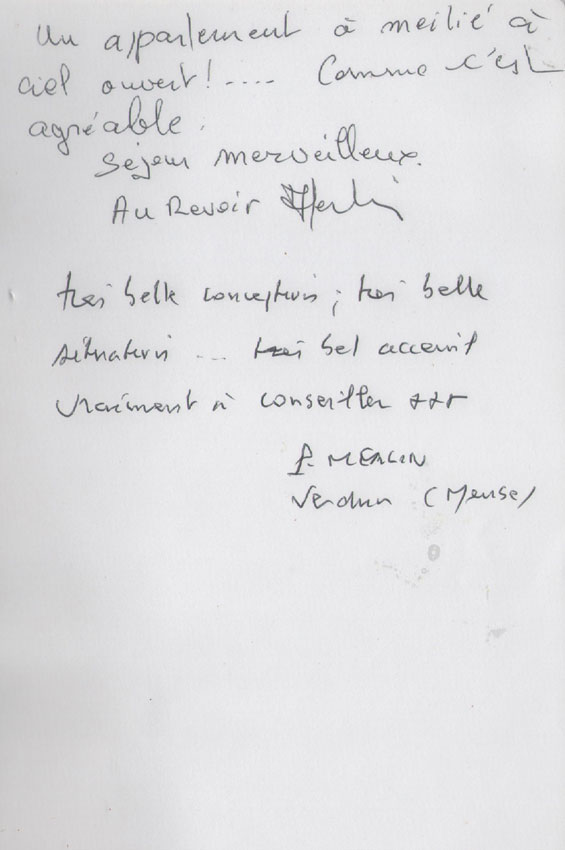 Un appartement à meitié à
ciel ouvert!.... Comme c'est
agréable.
Séjour merveilleux.
Au Revoir
très belle conception; très belle
situation ... très bel accueil
vraiment à conseiller +++
P. MERLIN
Verdun (Meuse)